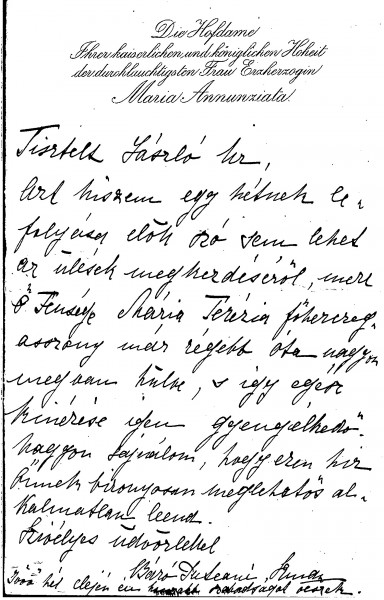 Die Hofdame
Ihrer kaiserlichen und königlichen Hoheit
der durchlauchtigsten Frau Erzherzogin
Maria Annunziata.
Tisztelt László úr,
Azt hiszem egy hétnek le-
folyása előtt szó sem lehet
az ülések megkezdéséről, mert
Ő Fensége Mária Terézia főherczeg-
asszony már régebb óta nagyon
meg van hűlve, s így egész
kinézése igen gyengélkedő.
Nagyon sajnálom, hogy ezen hír
Önnek bizonyosan meglehetős al-
kalmatlan leend.
Szívélyes üdvözlettel
Báró
Jövő hét elején én szabadságot veszek.